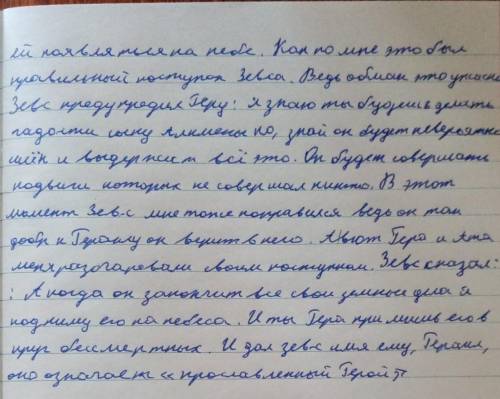 ей появляться на небе. Как по мне это был
правильный поступок Зевса. Ведь обман это ужасно
Зевс предупредил Геру: я знаю ты будешь делать
гадости сыну Алкмены но, знай он будет невероятно
и выдержит всё это. Он будет совершать
подвиги которых не совершал никто. В этот
момент Зевс мне тоже понравился ведь он так
добр к Гераклу он верит в него. А вот Гера и Ата
меня разочаровали своим поступком. Зевс сказал:
: А когда он закончит все свои земные дела я
подниму его на небеса. И ты Гера примешь его в
круг бессмертных. И дал зевс имя ему, Геракл,
оно означает « прославленный Герой"